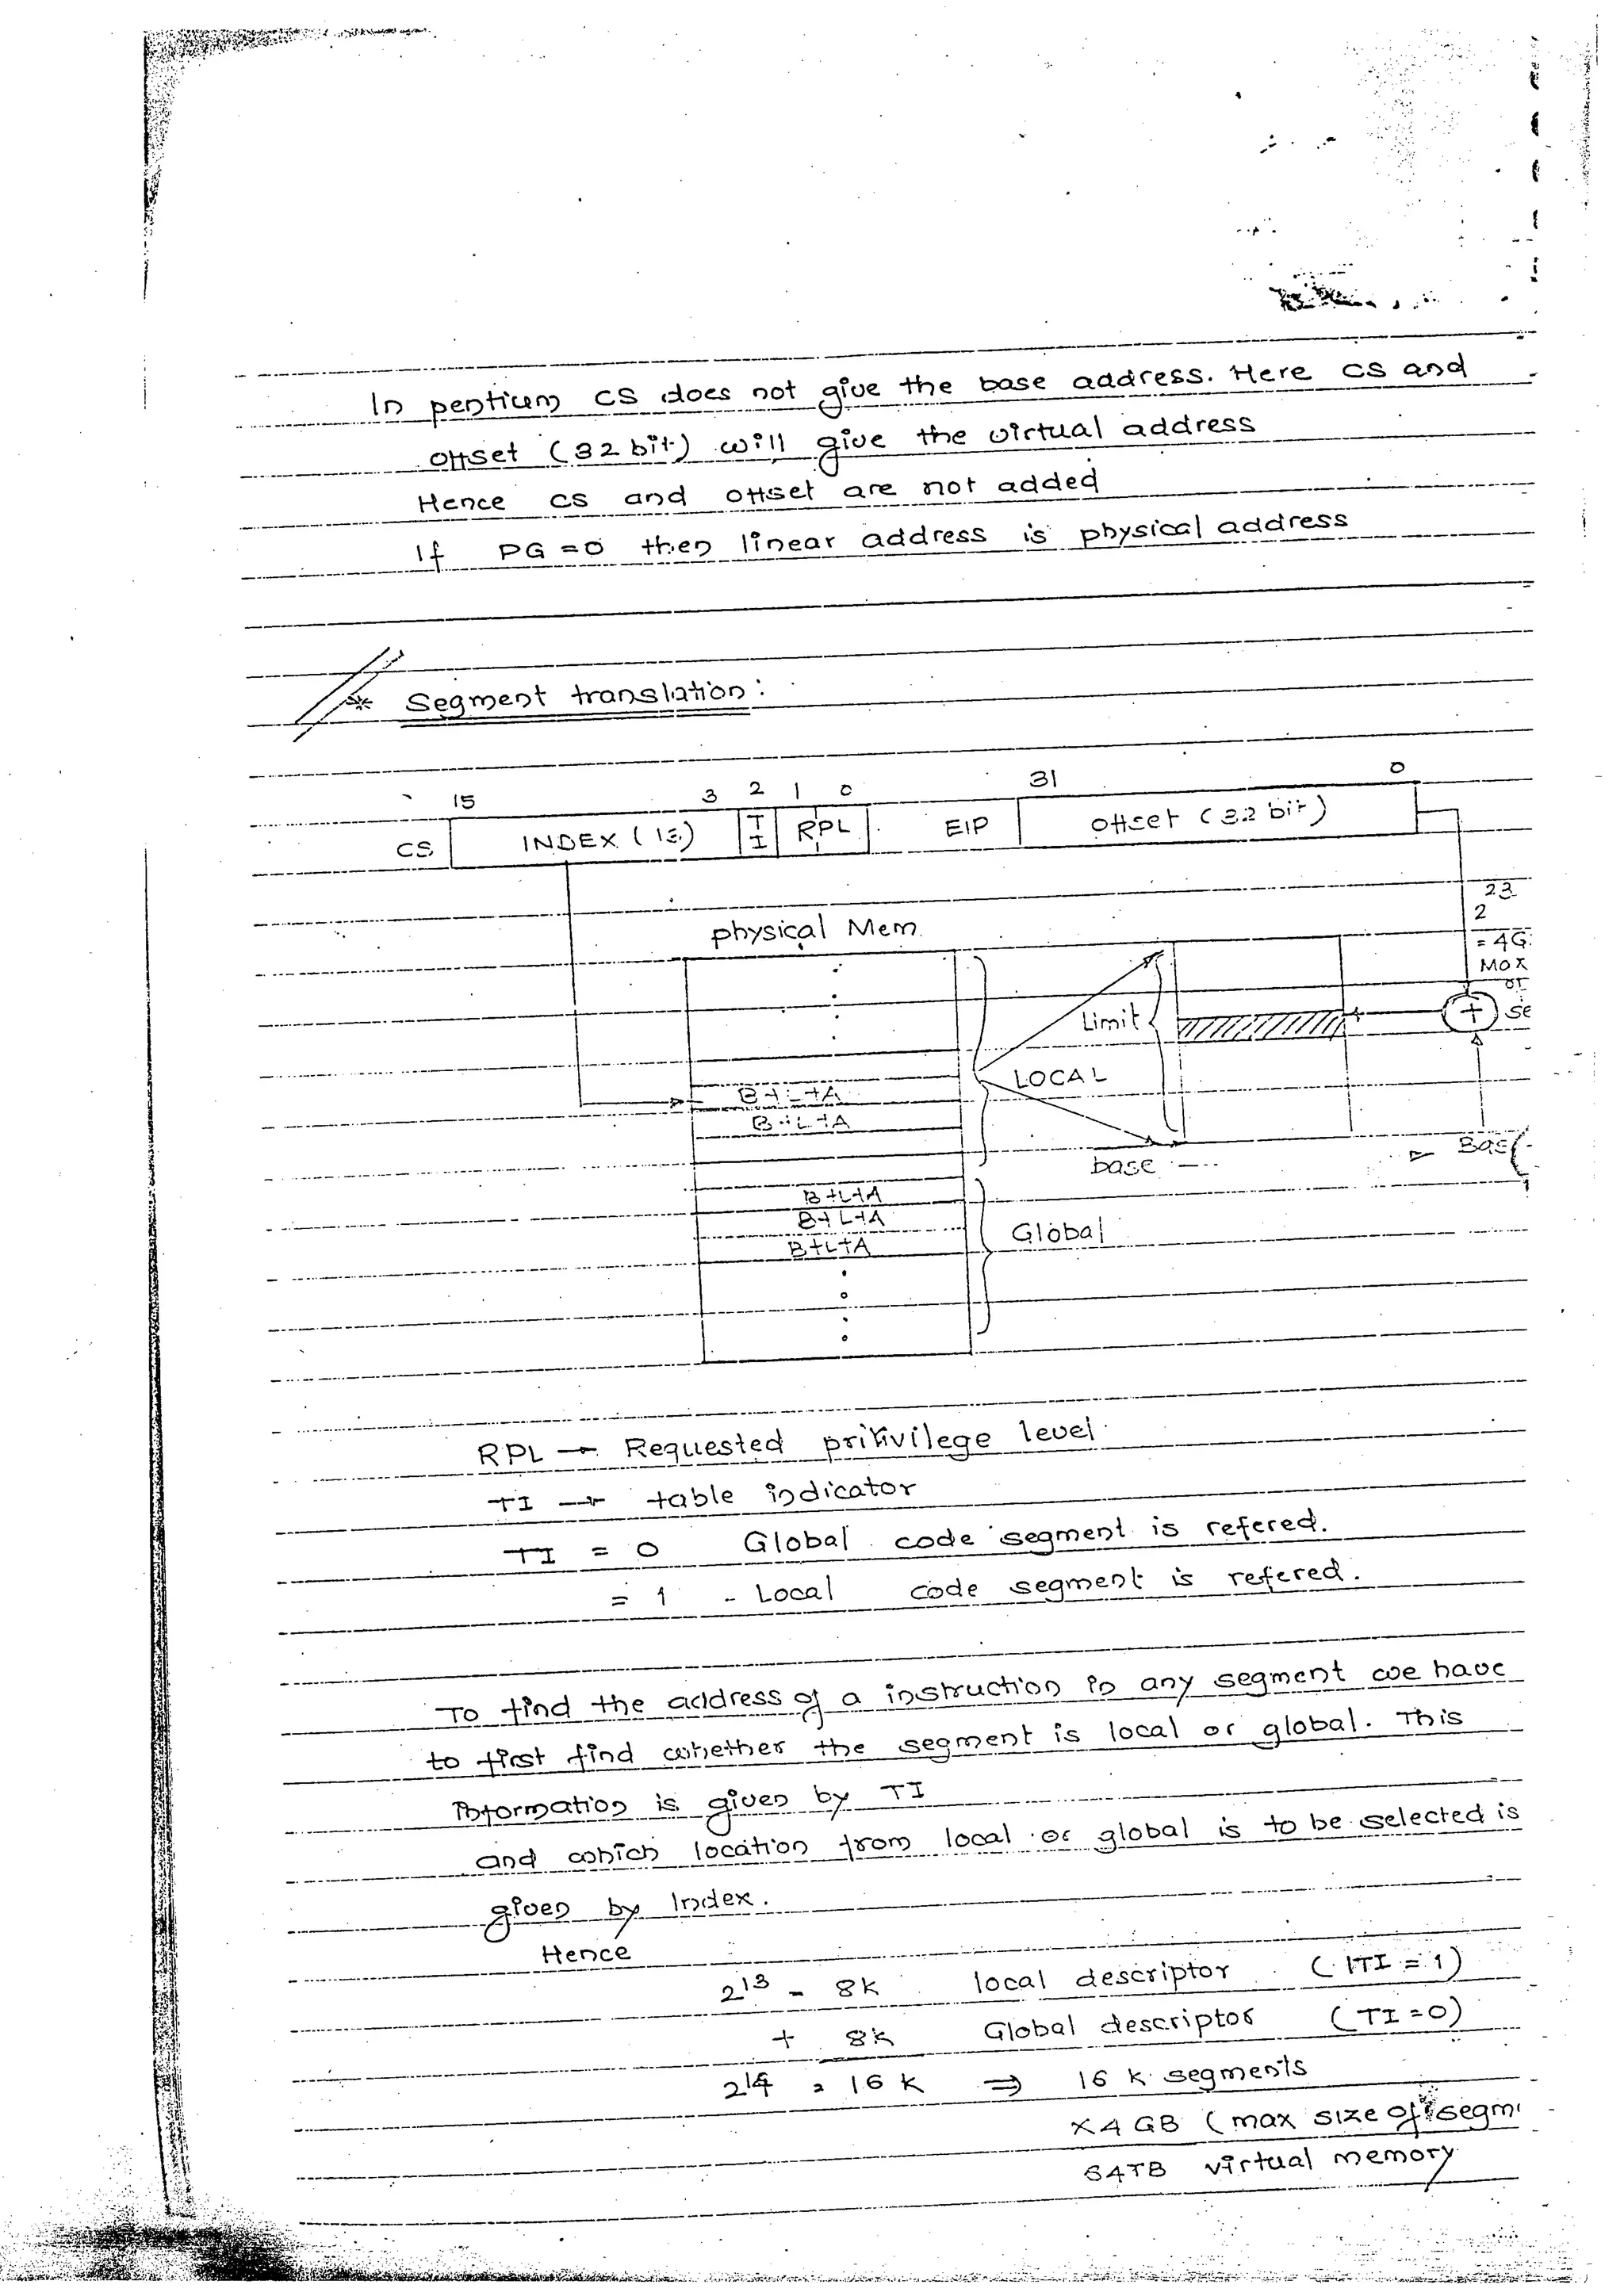 In pentium CS does not give the base address. Here CS and
offset (32 bit) will give the virtual address
Hence CS and offset are not added
If PG = 0 then linear address is physical address
* Segment translation :
15 3 2 1 0 31 0
CS INDEX (13) TI RPL EIP offset (32 bit)
physical Mem.
2
= 4G
Max
Limit + se
LOCAL
B+L+A
B+L+A
base
B+L+A
B+L+A
Global
B+L+A
RPL → Requested privilege level
TI → table indicator
TI = 0 Global code segment is refered.
= 1 - Local code segment is refered.
To find the address of a instruction in any segment we have
to first find whether the segment is local or global. This
information is given by TI
and which location from local or global is to be selected is
given by Index.
Hence
2¹³ - 8k local descriptor (TI = 1)
+ 8k Global descriptor (TI = 0)
2¹⁴ = 16 k ⇒ 16 k segments
X 4 GB (max size of segm
64TB virtual memory